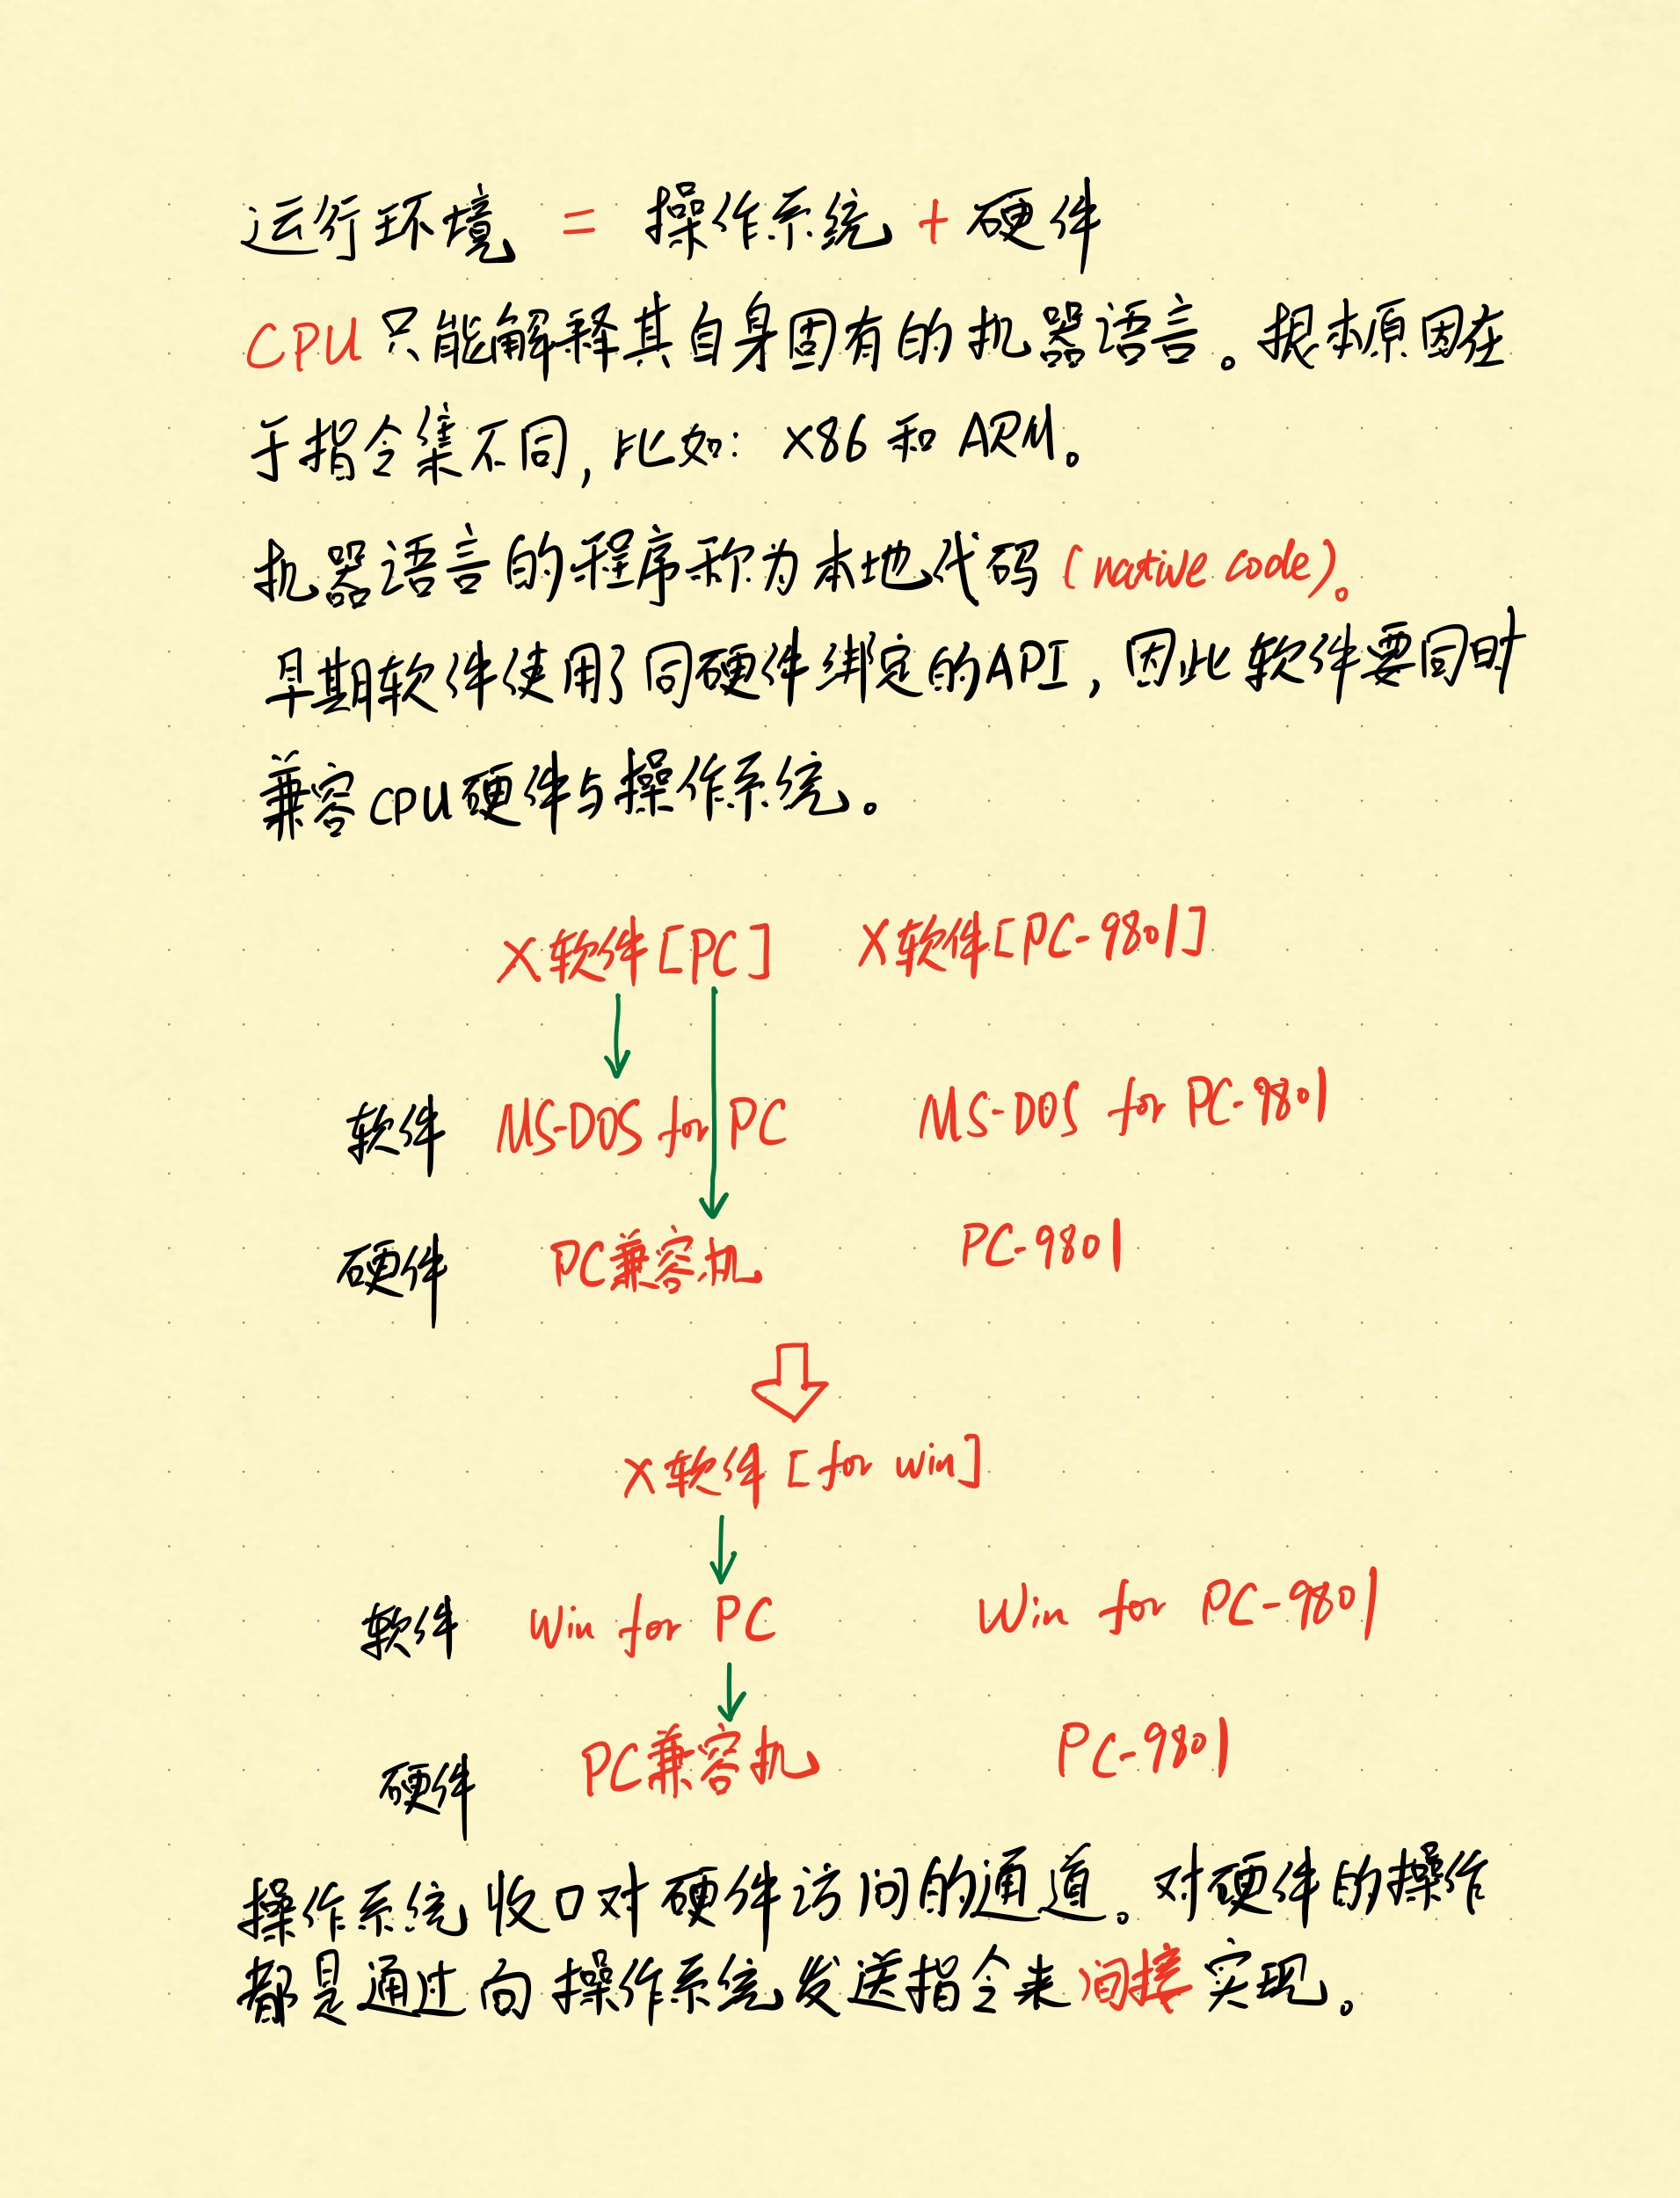 运行环境 = 操作系统 + 硬件
CPU只能解释其自身固有的机器语言。根本原因在
于指令集不同，比如：X86和ARM。
机器语言的程序称为本地代码（native code）。
早期软件使用了同硬件绑定的API，因此软件要同时
兼容CPU硬件与操作系统。
X软件[PC] X软件[PC-9801]
软件 MS-DOS for PC MS-DOS for PC-9801
硬件 PC兼容机 PC-9801
X软件[for win]
软件 Win for PC Win for PC-9801
硬件 PC兼容机 PC-9801
操作系统收口对硬件访问的通道。对硬件的操作
都是通过向操作系统发送指令来间接实现。